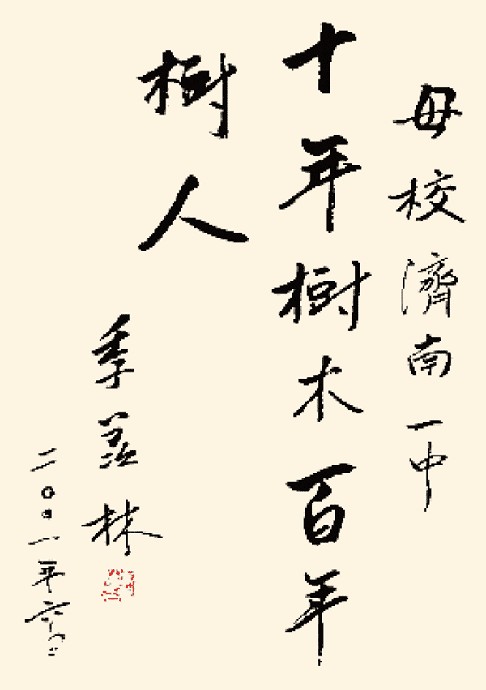 母校濟南一中
十年樹木百年
樹人
季羨林
二〇〇一年六月